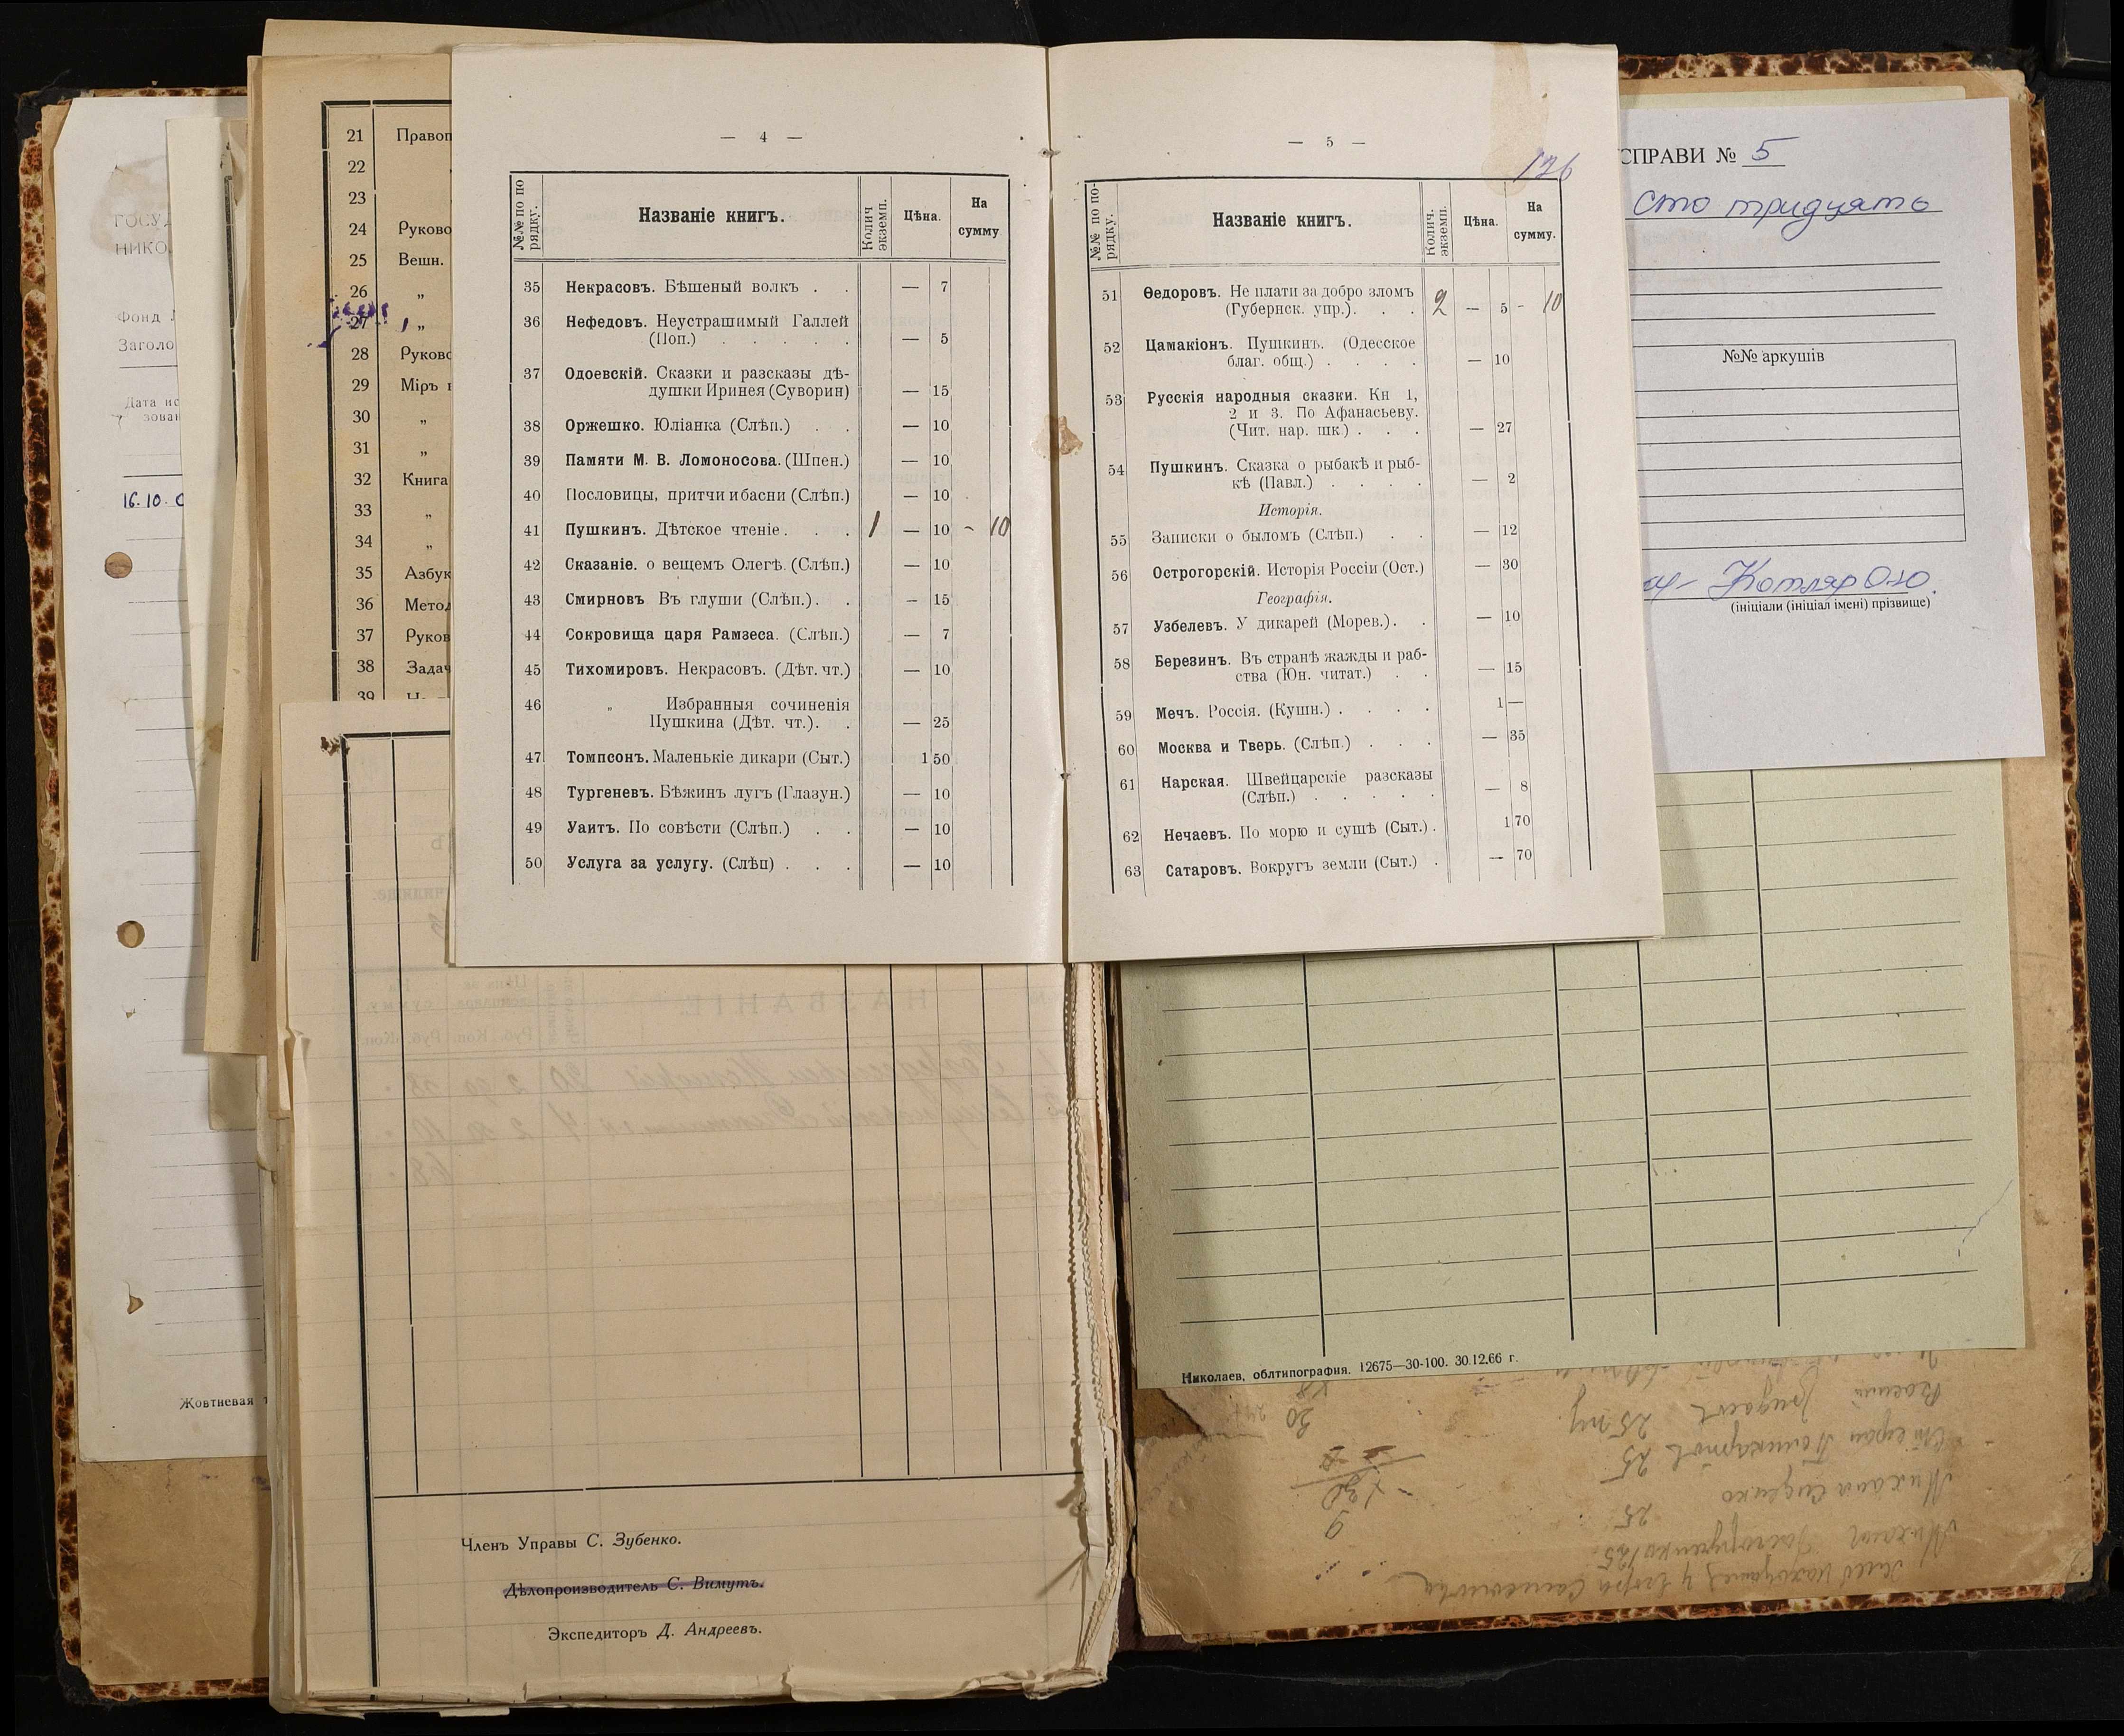 — 4 —
№№ по по рядку.
Названіе книгъ.
Колич экземп.
Цѣна.
На сумму
35 Некрасовъ. Бѣшеный волкъ . . — 7
36 Нефедовъ. Неустрашимый Галлей
(Поп.) . . . . . — 5
37 Одоевскій. Сказки и разсказы дѣ-
душки Иринея (Суворин) — 15
38 Оржешко. Юліанка (Слѣп.) . . — 10
39 Памяти М. В. Ломоносова. (Шпен.) — 10
40 Пословицы, притчи и басни (Слѣп.) — 10
41 Пушкинъ. Дѣтское чтеніе . . . 1 — 10 - 10
42 Сказаніе. о вещемъ Олегѣ. (Слѣп.) — 10
43 Смирновъ Въ глуши (Слѣп.). . — 15
44 Сокровища царя Рамзеса. (Слѣп.) — 7
45 Тихомировъ. Некрасовъ. (Дѣт. чт.) — 10
46 „ Избранныя сочиненія
Пушкина (Дѣт. чт.). . — 25
47 Томпсонъ. Маленькіе дикари (Сыт.) 1 50
48 Тургеневъ. Бѣжинъ лугъ (Глазун.) — 10
49 Уаитъ. По совѣсти (Слѣп.) . . — 10
50 Услуга за услугу. (Слѣп) . . . — 10
— 5 —
126
№№ по по-рядку.
Названіе книгъ.
Колич. экземп.
Цѣна.
На сумму.
51 Ѳедоровъ. Не плати за добро зломъ
(Губернск. упр.). . . 2 — 5 - 10
52 Цамакіонъ. Пушкинъ. (Одесское
благ. общ.) . . . . — 10
53 Русскія народныя сказки. Кн 1,
2 и 3. По Афанасьеву.
(Чит. нар. шк.) . . . — 27
54 Пушкинъ. Сказка о рыбакѣ и рыб-
кѣ (Павл.) . . . . — 2
Исторія.
55 Записки о быломъ (Слѣп.) . . — 12
56 Острогорскій. Исторія Россіи (Ост.) — 30
Географія.
57 Узбелевъ. У дикарей (Морев.). . — 10
58 Березинъ. Въ странѣ жажды и раб-
ства (Юн. читат.) . . — 15
59 Мечъ. Россія. (Кушн.) . . . . 1 —
60 Москва и Тверь. (Слѣп.) . . . — 35
61 Нарская. Швейцарскіе разсказы
(Слѣп.) . . . . . — 8
62 Нечаевъ. По морю и сушѣ (Сыт.) . 1 70
63 Сатаровъ. Вокругъ земли (Сыт.) . — 70
21 Правоп
22
23
24 Руково
25 Вешн.
26 „
27 „
28 Руково
29 Міръ
30 „
31 „
32 Книга
33 „
34 „
35 Азбук
36 Метод
37 Руков
38 Задач
39
ГОСУД
НИКО
Фонд
Заголо
Дата ис
зован
16.10.0
Жовтневая
СПРАВИ № 5
Сто тридцять
№№ аркушів
Котляр О.Ю.
(ініціали (ініціал імені) прізвище)
Николаев, облтипография. 12675—30-100. 30.12.66 г.
Членъ Управы С. Зубенко.
Дѣлопроизводитель С. Вимутъ.
Экспедиторъ Д. Андреевъ.